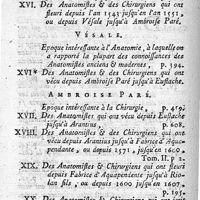 XVI. Des Anatomistes & des Chirurgiens qui ont
fleuri depuis l'an 1543 jusqu'en l'an 1551,
ou depuis Vésale jusqu'à Ambroise Paré.
VÉSALE.
Epoque intéressante à l'Anatomie, à laquelle on
a rapporté la plupart des connoissances des
Anatomistes anciens & modernes, p. 394.
XVI* Des Anatomistes & des Chirurgiens qui ont
vécu depuis Ambroise Paré jusqu'à Eustache.
AMBROISE PARÉ.
Epoque intéressante à la Chirurgie, p. 419.
XVII. Des Anatomistes qui ont vécu depuis Eustache
jusqu'à Arantius, p. 608.
XVIII. Des Anatomistes & des Chirurgiens qui ont
vécu depuis Arantius jusqu'à Fabrice d'Aqua-
pendente, ou depuis 1571, jusqu'en 1600.
Tom. II. p 2.
XIX. Des Anatomistes & Chirurgiens qui ont fleuri
depuis Fabrice d'Aquapendente jusqu'à Rio-
lan fils, ou depuis 1600 jusqu'en 1607.
p. 195.
XX. Des Anatomistes & Chirurgiens qui ont